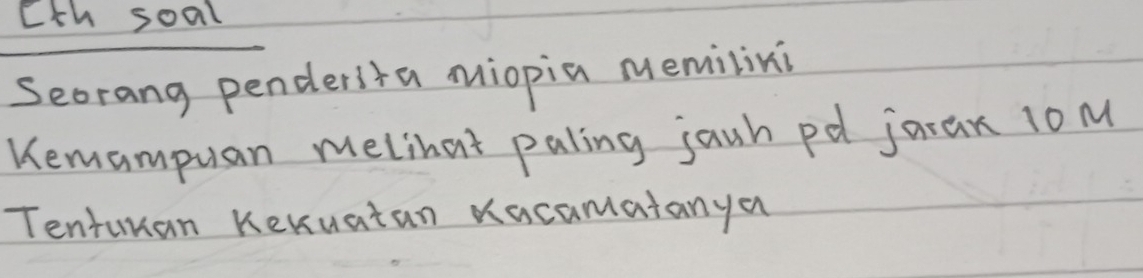 Cth soal
Seorang penderita miopia memiliki
Kemampuan melihat paling jauh pd jarak 10 M
Tentukan Kekuatan Kacamatanya